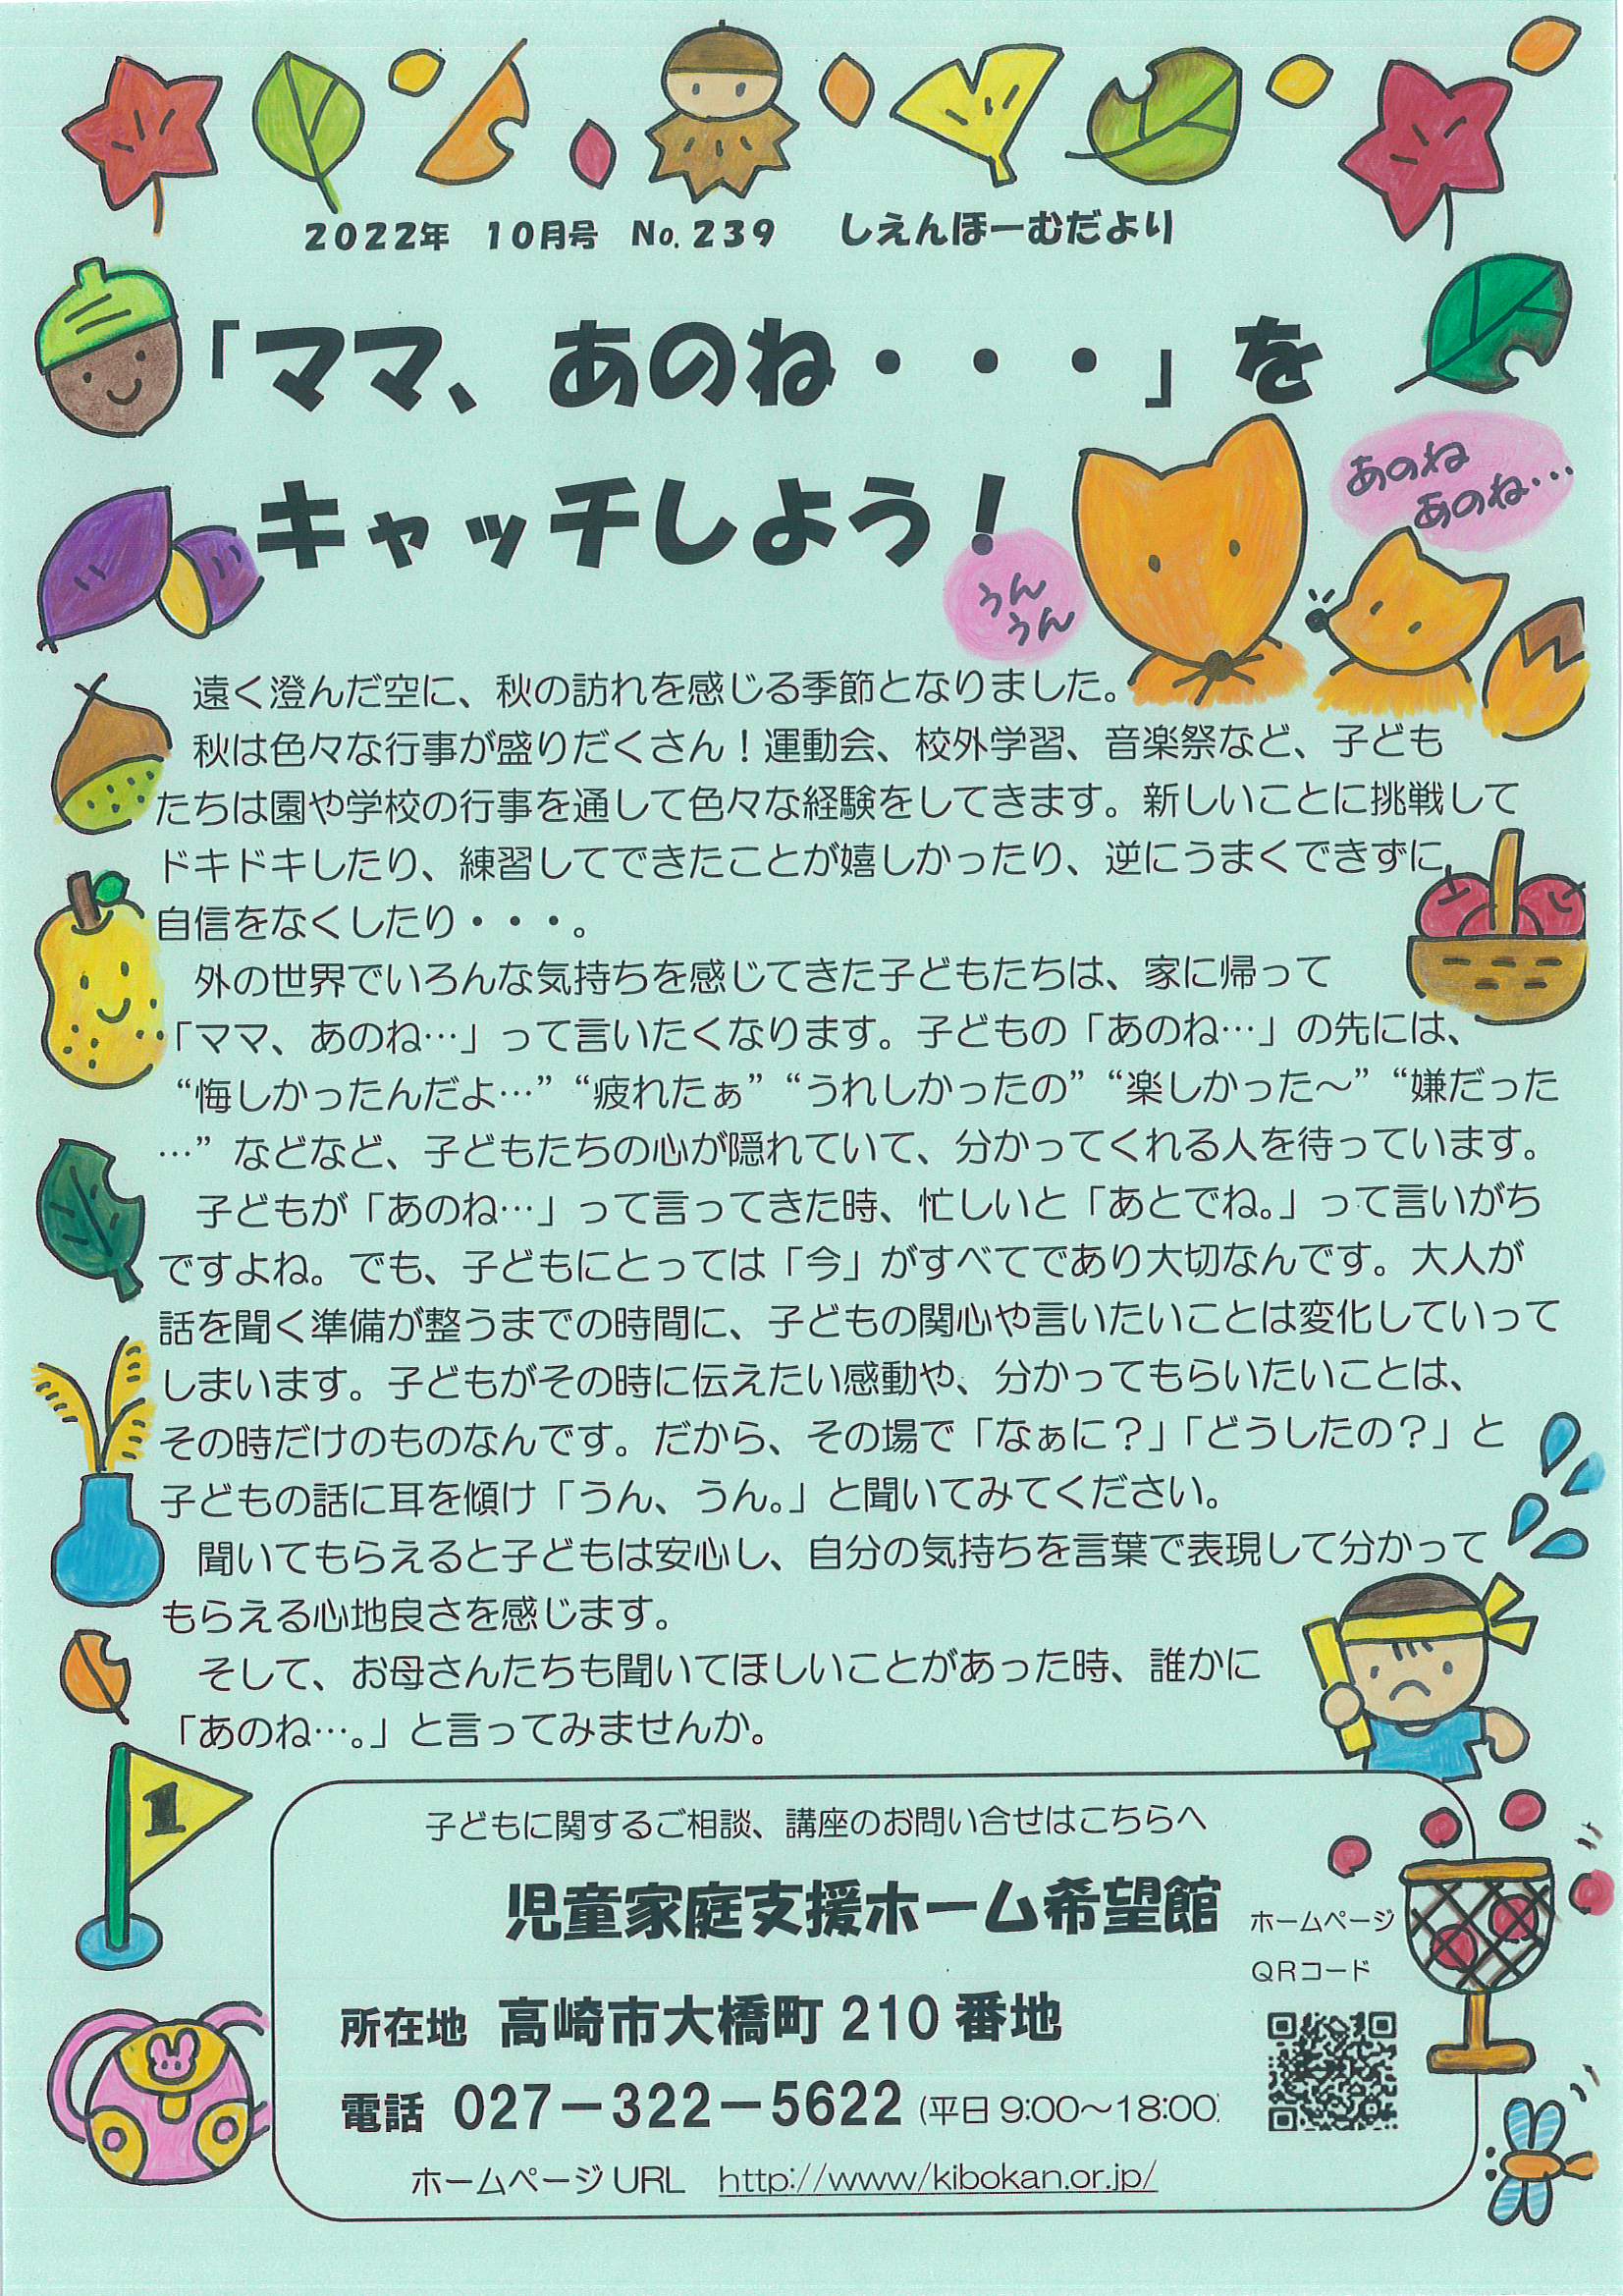 2022年　10月号　No.239　しえんほーむだより
「ママ、あのね・・・」を
キャッチしよう！
あのね
あのね…
うん
うん
遠く澄んだ空に、秋の訪れを感じる季節となりました。
秋は色々な行事が盛りだくさん！運動会、校外学習、音楽祭など、子ども
たちは園や学校の行事を通して色々な経験をしてきます。新しいことに挑戦して
ドキドキしたり、練習してできたことが嬉しかったり、逆にうまくできずに
自信をなくしたり・・・。
外の世界でいろんな気持ちを感じてきた子どもたちは、家に帰って
「ママ、あのね…」って言いたくなります。子どもの「あのね…」の先には、
“悔しかったんだよ…”“疲れたぁ”“うれしかったの”“楽しかった～”“嫌だった
…”などなど、子どもたちの心が隠れていて、分かってくれる人を待っています。
子どもが「あのね…」って言ってきた時、忙しいと「あとでね。」って言いがち
ですよね。でも、子どもにとっては「今」がすべてであり大切なんです。大人が
話を聞く準備が整うまでの時間に、子どもの関心や言いたいことは変化していって
しまいます。子どもがその時に伝えたい感動や、分かってもらいたいことは、
その時だけのものなんです。だから、その場で「なぁに？」「どうしたの？」と
子どもの話に耳を傾け「うん、うん。」と聞いてみてください。
聞いてもらえると子どもは安心し、自分の気持ちを言葉で表現して分かって
もらえる心地良さを感じます。
そして、お母さんたちも聞いてほしいことがあった時、誰かに
「あのね…。」と言ってみませんか。
1
子どもに関するご相談、講座のお問い合せはこちらへ
児童家庭支援ホーム希望館
ホームページ
QRコード
所在地　高崎市大橋町 210 番地
電話　027－322－5622 (平日 9:00～18:00)
ホームページ URL　http://www/kibokan.or.jp/